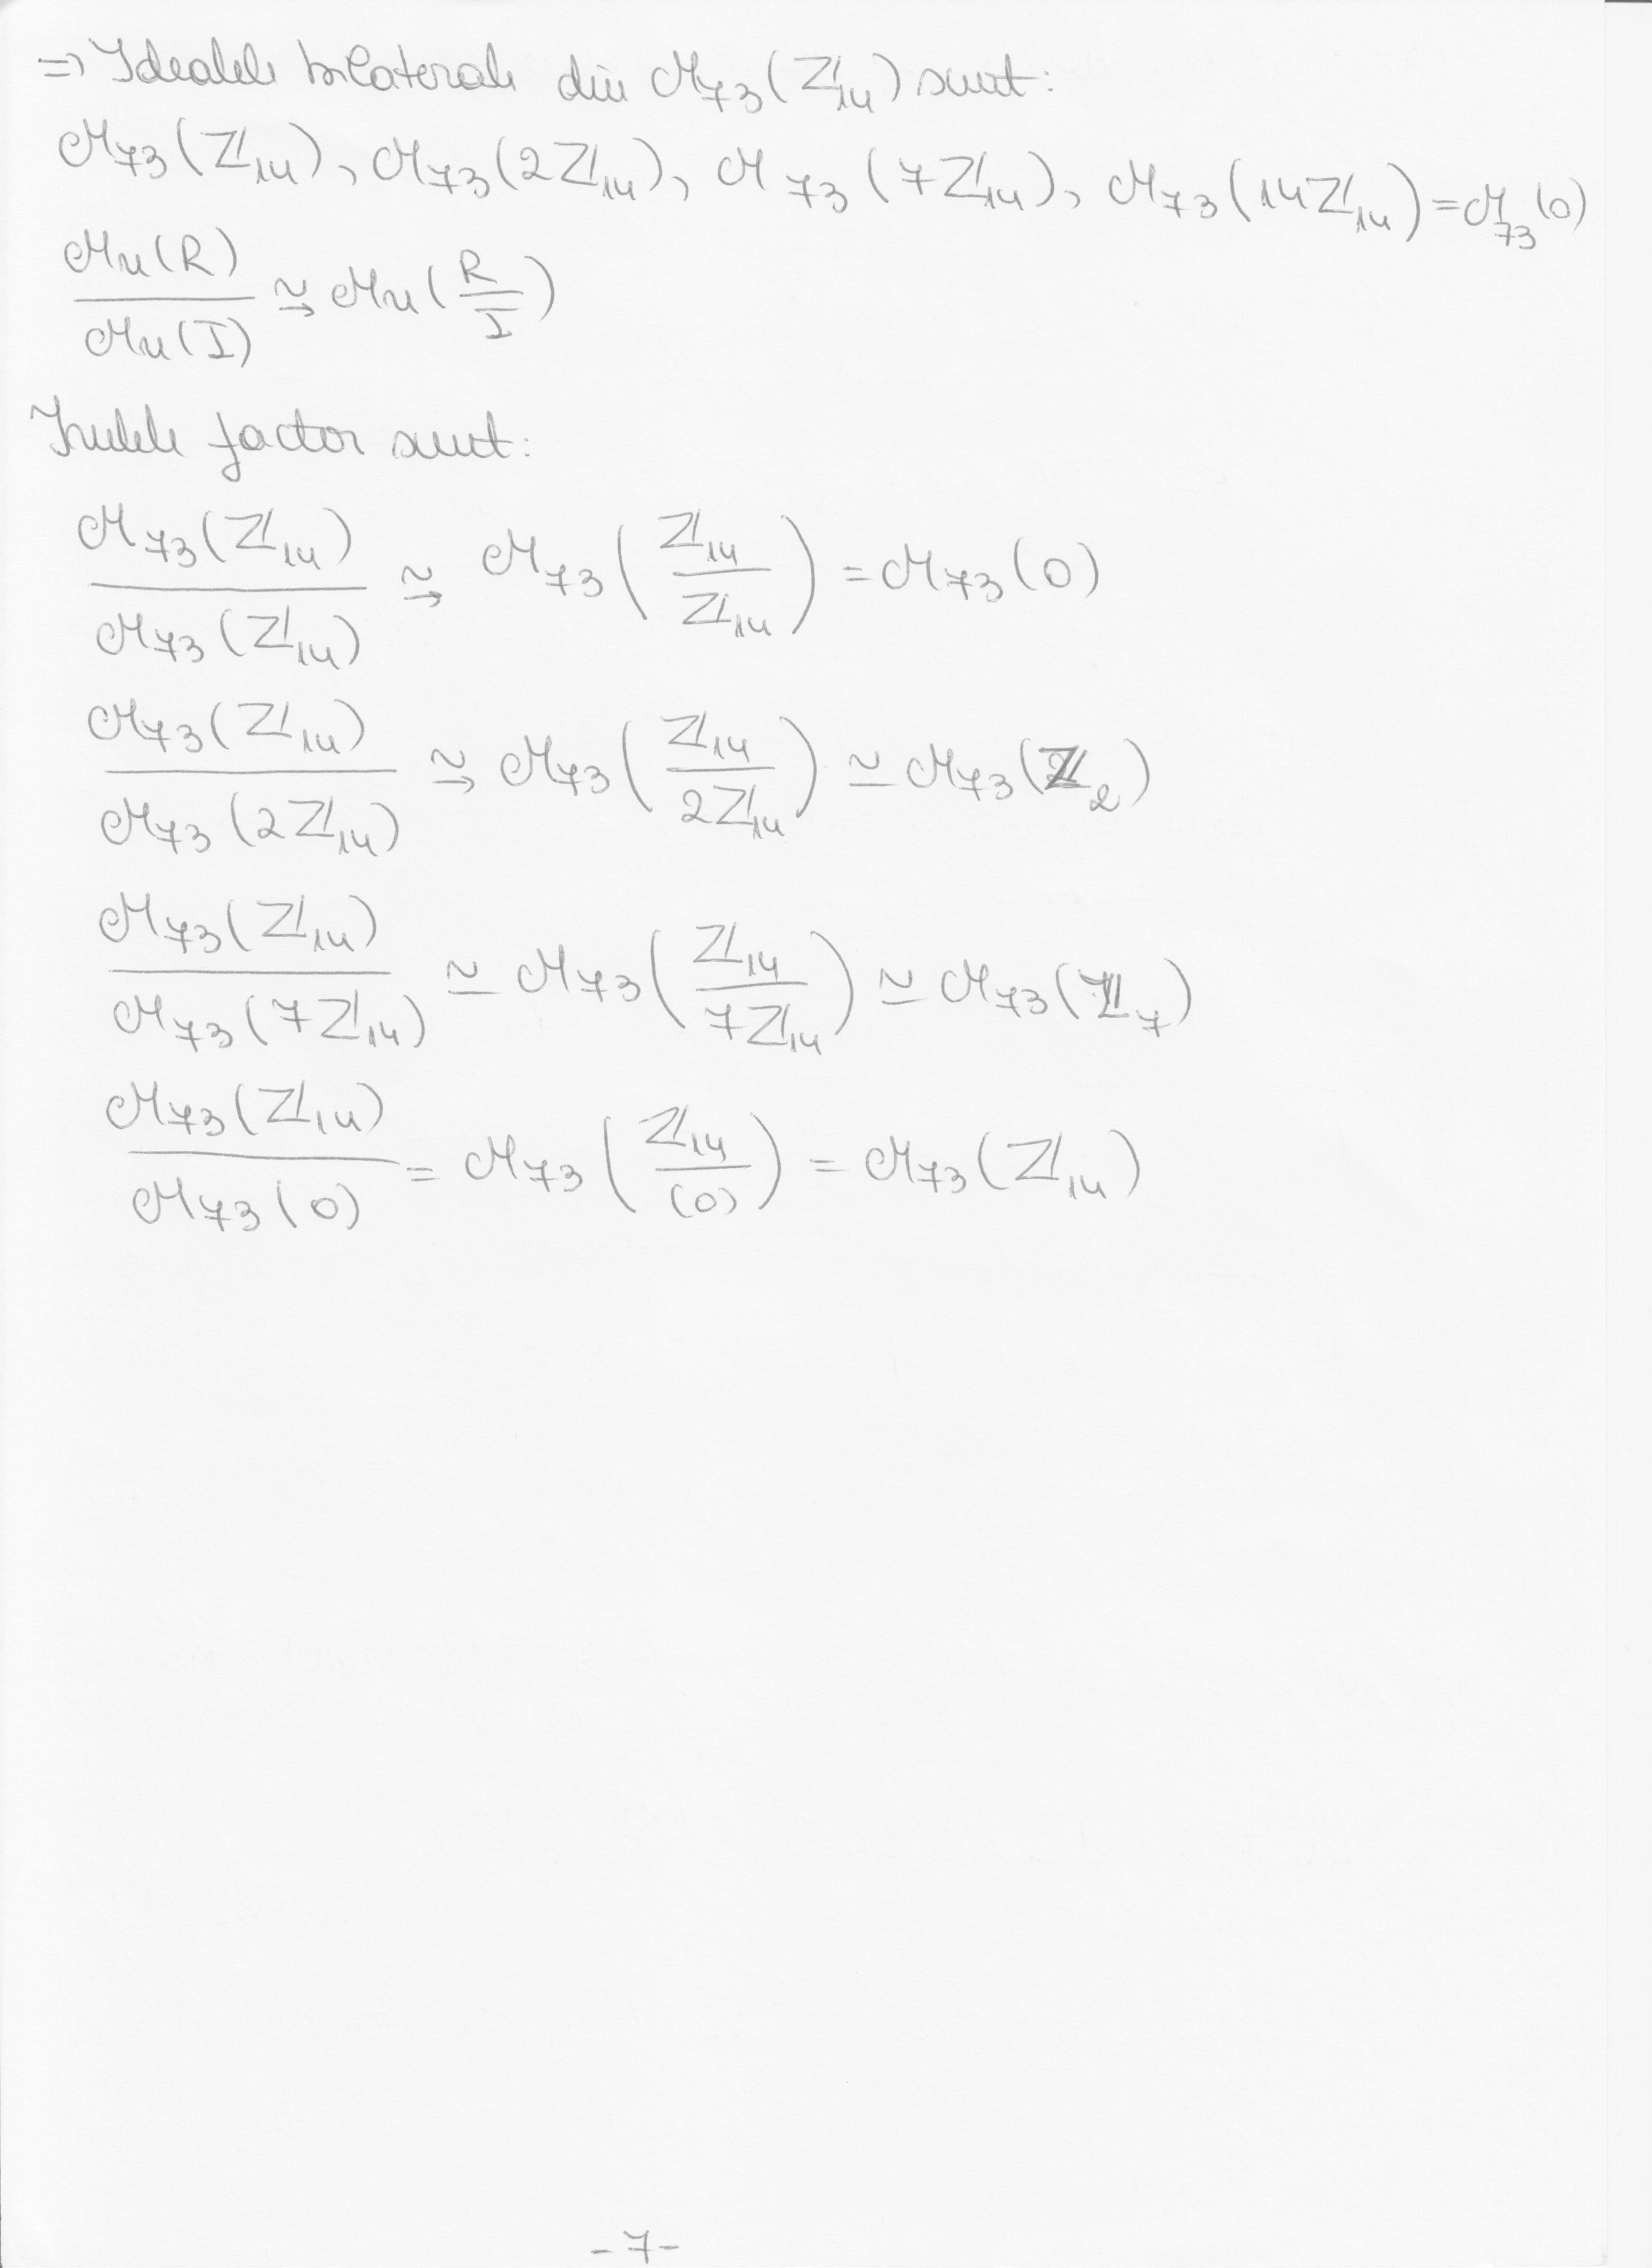 ⇒ Idealele bilaterale din M₇₃(ℤ₁₄) sunt:
M₇₃(ℤ₁₄), M₇₃(2ℤ₁₄), M₇₃(7ℤ₁₄), M₇₃(14ℤ₁₄) = M₇₃(0)
Mn(R) / Mn(I) ⥲ Mn(R/I)
Inelele factor sunt:
M₇₃(ℤ₁₄) / M₇₃(ℤ₁₄) ⥲ M₇₃(ℤ₁₄/ℤ₁₄) = M₇₃(0)
M₇₃(ℤ₁₄) / M₇₃(2ℤ₁₄) ⥲ M₇₃(ℤ₁₄/2ℤ₁₄) ≃ M₇₃(ℤ₂)
M₇₃(ℤ₁₄) / M₇₃(7ℤ₁₄) ≃ M₇₃(ℤ₁₄/7ℤ₁₄) ≃ M₇₃(ℤ₇)
M₇₃(ℤ₁₄) / M₇₃(0) = M₇₃(ℤ₁₄/(0)) = M₇₃(ℤ₁₄)
-7-